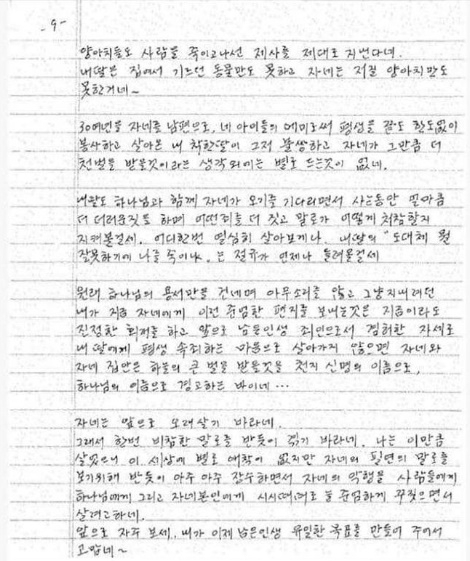 - 9 -
양아치들도 사람을 죽이고나선 제사를 제대로 지낸다네.
내딸은 집에서 기르던 동물만도 못하고 자네는 저질 양아치만도
못한거네~
30여년을 자네를 남편으로, 네 아이들의 에미로써 평생을 끝도 한도없이
봉사하고 살아온 내 착한딸이 그저 불쌍하고 자네가 그만큼 더
천벌을 받을것이라는 생각외에는 별로 드는것이 없네.
내딸도 하나님과 함께 자네가 오기를 기다리면서 사는동안 얼마큼
더 더러운짓을 하며 어떤죄를 더 짓고 말로가 어떻게 처참할지
지켜볼걸세. 어디한번 열심히 살아보게나. 내딸의 "도대체 뭘
잘못하기에 나를 속이나. 는 절규가 언제나 들려올걸세
원래 하나님의 용서만을 건네며 아무소리를 않고 그냥지내려던
내가 지금 자네에게 이런 준엄한 편지를 보내는것은 지금이라도
진정한 회개를 하고 앞으로 남은인생 죄인으로서 겸허한 자세로
내딸에게 평생 속죄하는 마음으로 살아가지 않으면 자네와
자네 집안은 하늘의 큰 벌을 받을것을 천지 신명의 이름으로,
하나님의 이름으로 경고하는 바이네…
자네는 앞으로 오래살기 바라네.
그래서 한번 비참한 말로를 반듯이 겪기 바라네. 나는 이만큼
살았으니 이 세상에 별로 애착이 없지만 자네의 필연의 말로를
보기위해 반듯이 아주 아주 장수하면서 자네의 악행을 사람들에게
하나님에게 그리고 자네본인에게 시시때때로 늘 준엄하게 꾸짖으면서
살려고하네.
앞으로 자주 보세. 내가 이제 남은인생 유일한 목표를 만들어 주어서
고맙네~